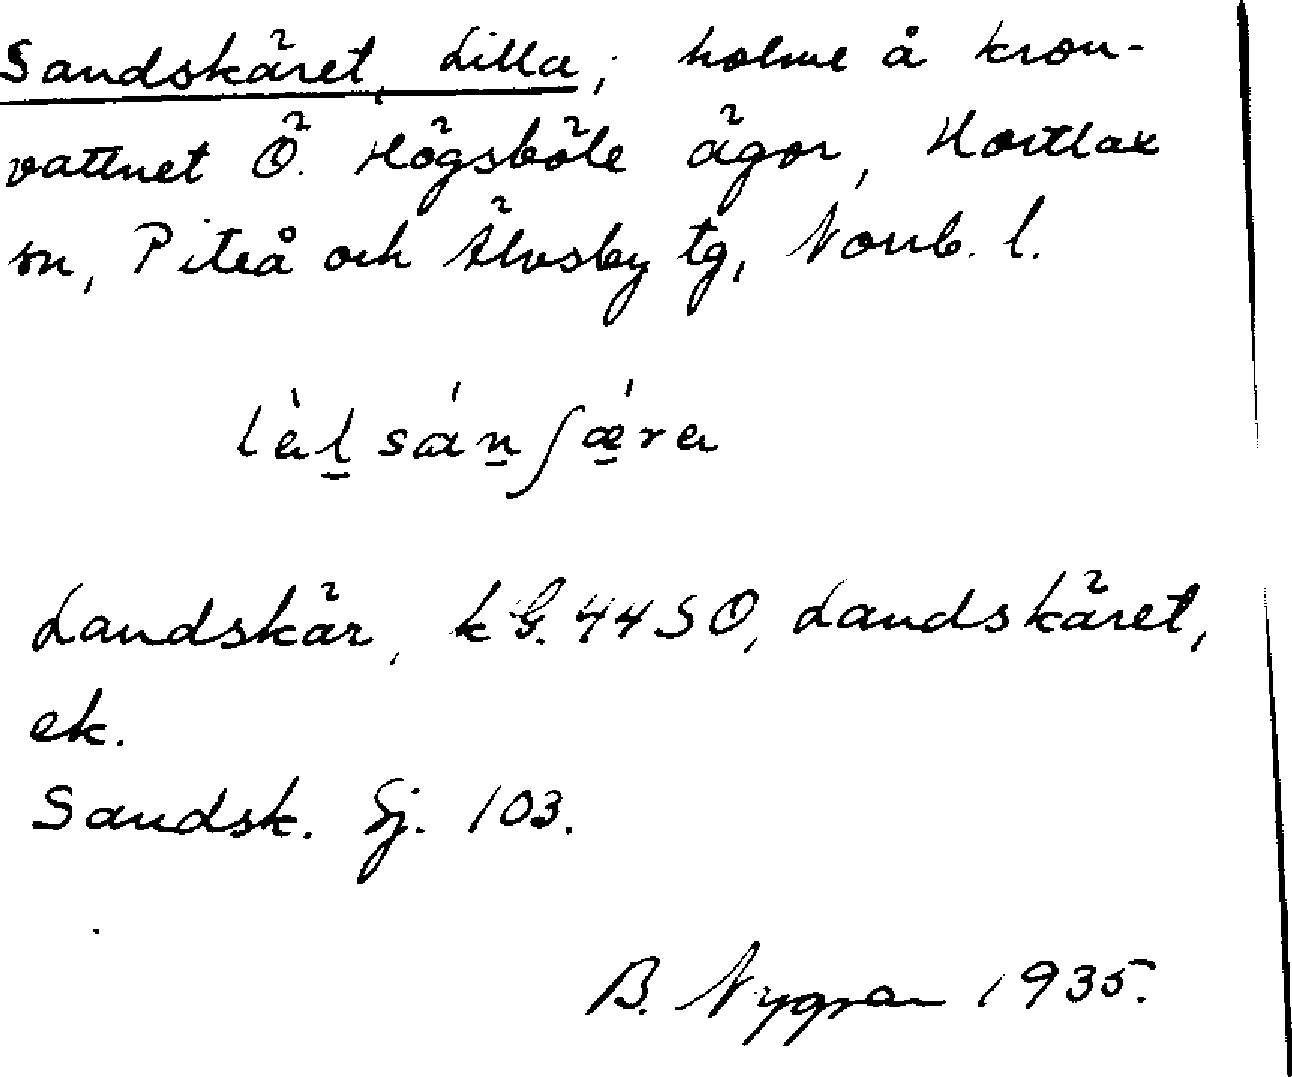 Sandskäret, Lilla; holme å kron-
vattnet Ö. Högsböle ägor, Hortlax
sn, Piteå och Älvsby tg, Norrb. l.
làl̲ sán̲ʃǽ̲ra
Landskär, kG. 44 SO, Landskäret,
ek.
Sandsk. Sj. 103.
B. Nygren 1935.